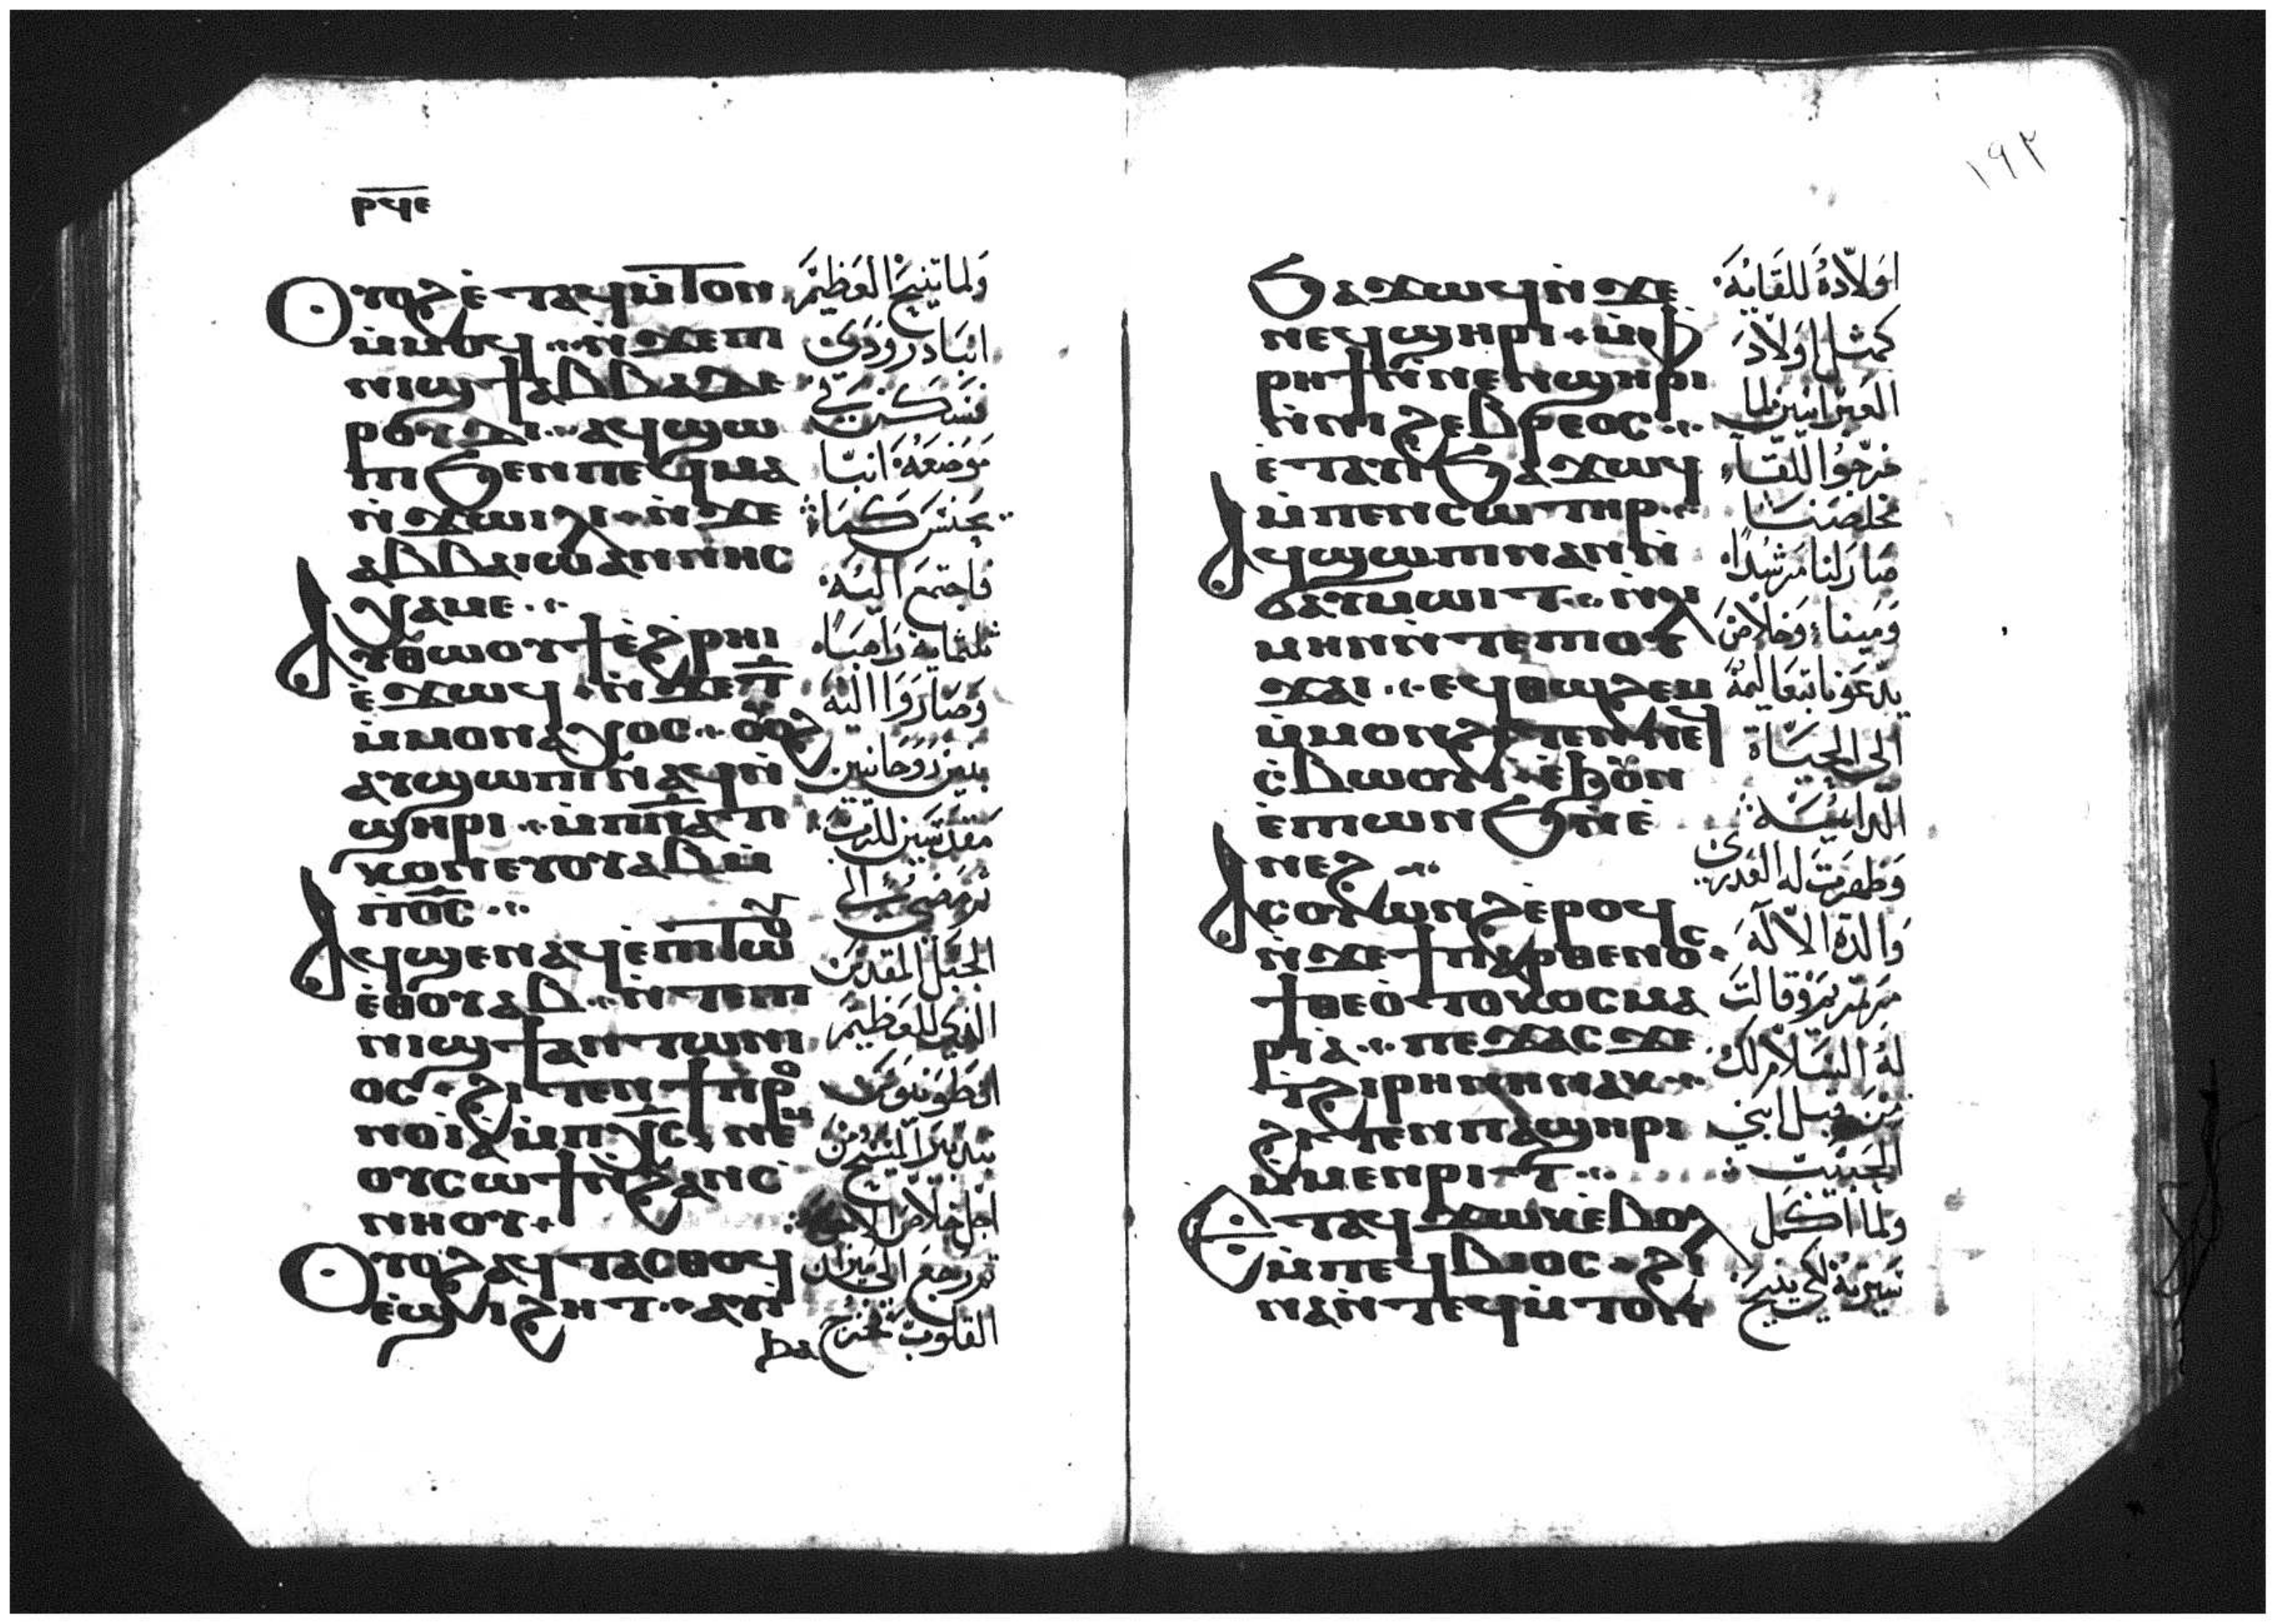 ⲣϥⲉ
Ⲟⲩⲟϩ ⲉ̀ⲧⲁϥⲙ̀ⲧⲟⲛ
ⲙ̀ⲙⲟϥ ⲛ̀ϫⲉⲡⲓ
ⲛⲓϣϯ ⲁⲃⲃⲁ ⲇⲉ
ⲣⲟⲩⲇⲓ ⲁϥϣⲱ
ⲡⲓ ϧⲉⲛ ⲡⲉϥⲙⲁ
ⲛ̀ϫⲱⲓⲗⲓ ⲛ̀ϫⲉ
ⲁⲃⲃⲁ ⲓⲱⲁⲛⲛⲏⲥ
ⲭⲁⲙⲉ
Ⲁⲩⲑⲱⲟⲩϯ ⲉ̀ϩ̀ⲣⲏⲓ
ⲉ̀ϫⲱϥ ⲛ̀ϫⲉ ⲧ̅
ⲙ̀ⲙⲟⲛⲁⲭⲟⲥ ⲟⲩⲟϩ
ⲁⲩϣⲱⲡⲓ ⲛⲁϥ ⲛ̀
ϣⲏⲣⲓ ⲙ̀ⲡ̅ⲛ̅ⲁ̅ⲧⲓ
ⲕⲟⲛ ⲉⲩⲟⲩⲁⲃ ⲙ̀
ⲡ̅ⲟ̅ⲥ̅
Ⲁϥϣⲉⲛⲁϥ ⲉ̀ⲡⲓⲧⲱⲟⲩ
ⲉ̀ⲑⲟⲩⲁⲃ ⲛ̀ⲧⲉⲡⲓ
ⲛⲓϣϯ ⲁⲛⲧⲱⲛⲓ
ⲟⲥ ϩⲓⲧⲉⲛ ϯⲡⲣⲟ
ⲛⲟⲓⲁ̀ ⲙ̀ⲡⲭ̅ⲥ̅ ⲛⲉⲙ
ⲟⲩⲥⲱϯ ⲛ̀ϩⲁⲛⲥ̀
ⲛⲏⲟⲩ
Ⲟⲩⲟϩ ⲁϥⲧⲁⲥⲑⲟϥ
ⲉ̀ϣⲓϩⲏⲧ ⲁⲡⲓ
ⲃⲁ
ولما تنيح العظيم
انبا دروذي
فسكن في
موضعه انبا
يحنس كماء
فاجتمع اليه
ثلثماية راهبا
وصاروا اليه
بنين روحانيين
مقدسين للرب
ثم مضى الى
الجبل المقدس
الذي للعظيم
انطونيوس
بتدبير المسيح من
اجل خلاص الاخوة
ثم رجع الى ميزان
القلوب فخرج
١٩٢
ϧⲁϫⲱϥ ⲛ̀ϫⲉ
ⲛⲉϥϣⲏⲣⲓ ⲙ̀ⲫ̀
ⲣⲏϯ ⲛ̀ⲛⲉⲛϣⲏⲣⲓ
ⲛ̀ⲛⲓϩⲉⲃⲣⲉⲟⲥ
ⲉ̀ⲧⲁⲩⲓ̀ ϧⲁϫⲱϥ
ⲙ̀ⲡⲉⲛⲥⲱⲧⲏⲣ
Ⲁϥϣⲱⲡⲓ ⲛⲁⲛ ⲛ̀
ϭⲁⲩⲙⲱⲓⲧ ⲛ̀ⲗⲩ
ⲙⲏⲛ ⲛ̀ⲧⲉⲡⲓⲟⲩ
ϫⲁⲓ ⲉϥⲑⲱϩⲉⲙ
ⲙ̀ⲙⲟⲛ ϩⲓⲧⲉⲛ ⲛⲉϥ
ⲥ̀ⲃⲱⲟⲩⲓ̀ ⲉ̀ϧⲟⲩⲛ
ⲉ̀ⲡⲓⲱⲛϧ ⲛ̀ⲉ̀
ⲛⲉϩ
Ⲁⲥⲟⲩⲱⲛϩ ⲉ̀ⲣⲟϥ
ⲛ̀ϫⲉ ϯⲡⲁⲣⲑⲉⲛⲟⲥ
ϯⲑⲉⲟ̀ⲧⲟⲕⲟⲥ ⲙⲁ
ⲣⲓⲁ̀ ⲡⲉϫⲁⲥ ϫⲉ
ⲧ̀ϩⲓⲣⲏⲛⲏ ⲛⲁⲕ
ϩⲓⲧⲉⲛ ⲡⲁϣⲏⲣⲓ
ⲙ̀ⲙⲉⲛⲣⲓⲧ
Ⲉⲧⲁϥϫⲱⲕ ⲉ̀ⲃⲟⲗ
ⲙ̀ⲡⲉϥⲃⲓⲟⲥ ϩⲓ
ⲛⲁ ⲛ̀ⲧⲉϥⲙ̀ⲧⲟⲛ
اولاده للقايه
كمثل اولاد
العبرانيين لما
خرجوا للقاء
مخلصنا
صار لنا مرشدا
ومينا وخلاص
يدعونا بتعاليمه
الى الحياة
الدايمة
وظهرت له العذرى
والدة الاله
مريم وقالت
له السلام لك
من قبل ابني
الحبيب
ولما اكمل
سيرته لكي يتنيح